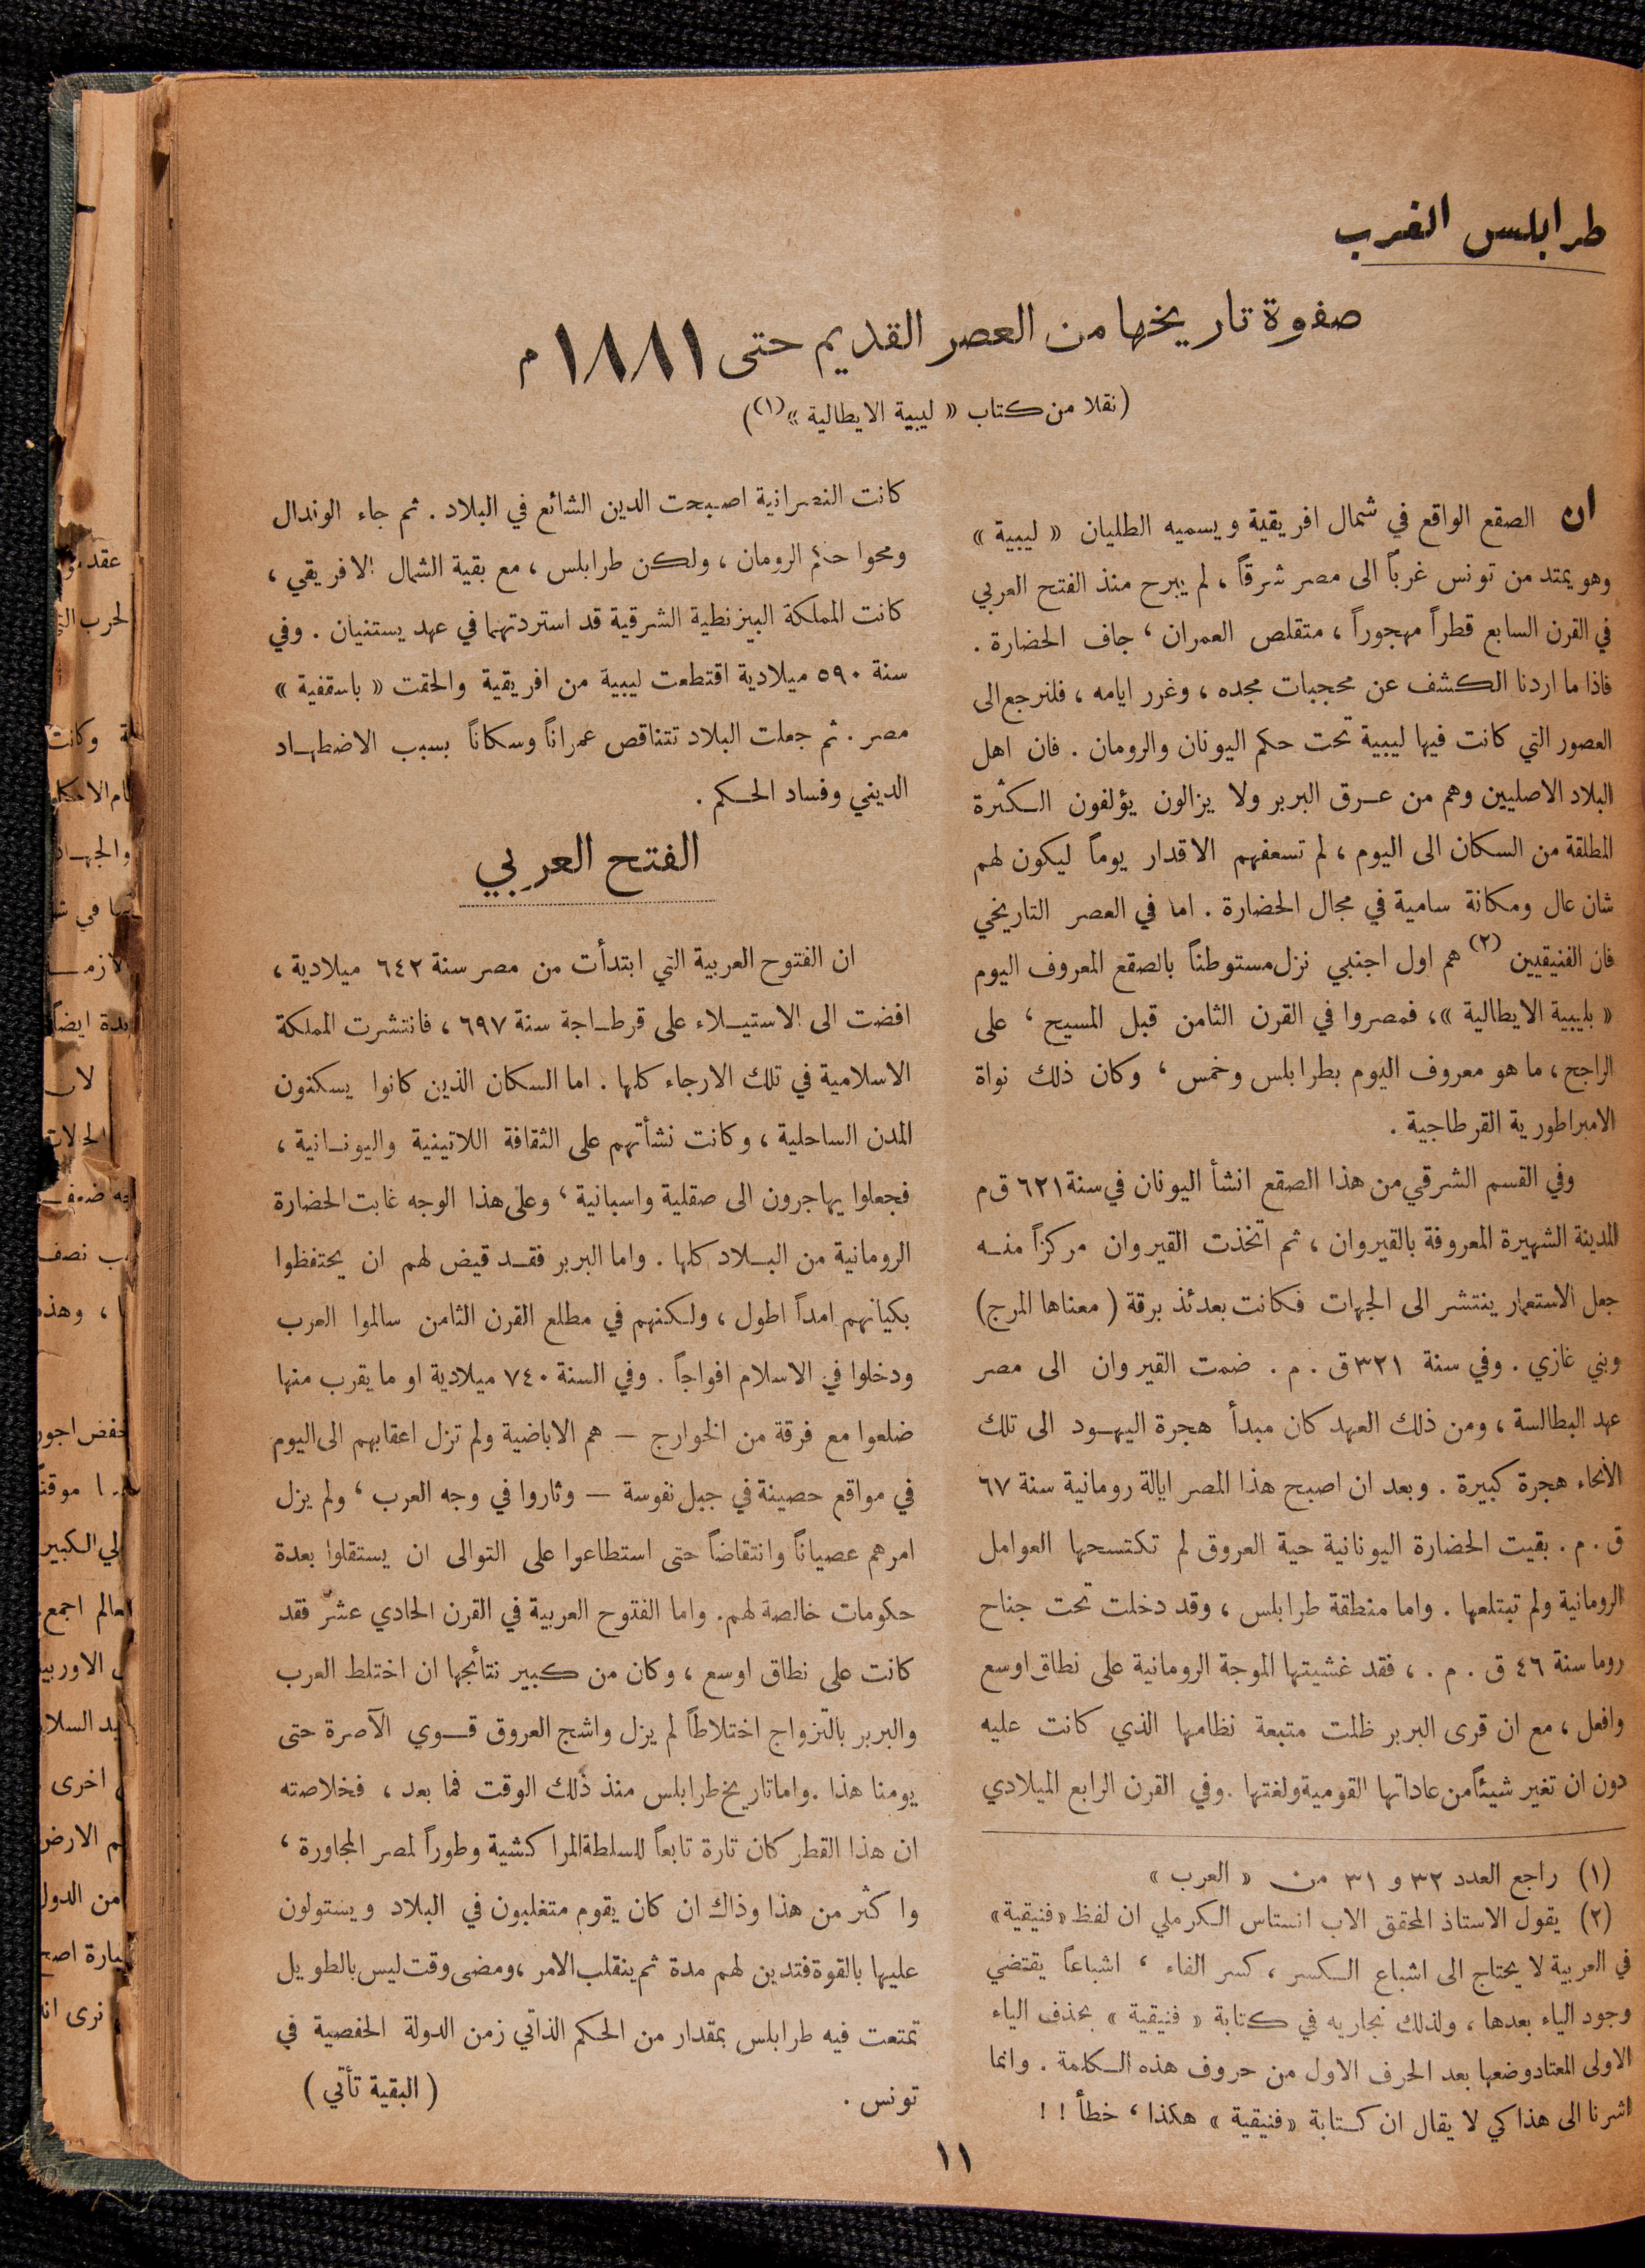 طرابلس الغرب
صفوة تاريخها من العصر القديم حتى ١٨٨١ م
(نقلا من كتاب « ليبية الايطالية »(١))
ان الصقع الواقع في شمال افريقية ويسميه الطليان « ليبية »
وهو يمتد من تونس غرباً الى مصر شرقاً ، لم يبرح منذ الفتح العربي
في القرن السابع قطراً مهجوراً ، متقلص العمران ، جاف الحضارة .
فاذا ما اردنا الكشف عن محجبات مجده ، وغرر ايامه ، فلنرجع الى
العصور التي كانت فيها ليبية تحت حكم اليونان والرومان . فان اهل
البلاد الاصليين وهم من عرق البربر ولا يزالون يؤلفون الكثرة
المطلقة من السكان الى اليوم ، لم تسعفهم الاقدار يوماً ليكون لهم
شان عال ومكانة سامية في مجال الحضارة . اما في العصر التاريخي
فان الفنيقيين (٢) هم اول اجنبي نزل مستوطناً بالصقع المعروف اليوم
« بليبية الايطالية » ، فمصروا في القرن الثامن قبل المسيح ، على
الراجح ، ما هو معروف اليوم بطرابلس وخمس ، وكان ذلك نواة
الامبراطورية القرطاجية .
وفي القسم الشرقي من هذا الصقع انشأ اليونان في سنة ٦٢١ ق م
المدينة الشهيرة المعروفة بالقيروان ، ثم اتخذت القيروان مركزاً منه
جعل الاستعمار ينتشر الى الجهات فكانت بعدئذ برقة ( معناها المرج )
وبني غازي . وفي سنة ٣٢١ ق . م . ضمت القيروان الى مصر
عهد البطالسة ، ومن ذلك العهد كان مبدأ هجرة اليهود الى تلك
الأنحاء هجرة كبيرة . وبعد ان اصبح هذا المصر ايالة رومانية سنة ٦٧
ق . م . بقيت الحضارة اليونانية حية العروق لم تكتسحها العوامل
الرومانية ولم تبتلعها . واما منطقة طرابلس ، وقد دخلت تحت جناح
روما سنة ٤٦ ق . م . ، فقد غشيتها الموجة الرومانية على نطاق اوسع
وافعل ، مع ان قرى البربر ظلت متبعة نظامها الذي كانت عليه
دون ان تغير شيئاً من عاداتها القومية ولغتها . وفي القرن الرابع الميلادي
(١) راجع العدد ٣٢ و ٣١ من « العرب »
(٢) يقول الاستاذ المحقق الاب انستاس الكرملي ان لفظ « فنيقية »
في العربية لا يحتاج الى اشباع الكسر ، كسر الفاء ، اشباعاً يقتضي
وجود الياء بعدها ، ولذلك نجاريه في كتابة « فنيقية » بحذف الياء
الاولى المعتاد وضعها بعد الحرف الاول من حروف هذه الكلمة . وانما
اشرنا الى هذا كي لا يقال ان كتابة « فنيقية » هكذا ، خطأ ! !
كانت النصرانية اصبحت الدين الشائع في البلاد . ثم جاء الوندال
ومحوا حكم الرومان ، ولكن طرابلس ، مع بقية الشمال الافريقي ،
كانت المملكة البيزنطية الشرقية قد استردتهما في عهد يستنيان . وفي
سنة ٥٩٠ ميلادية اقتطعت ليبية من افريقية والحقت « باسقفية »
مصر . ثم جعلت البلاد تتناقص عمراناً وسكاناً بسبب الاضطهاد
الديني وفساد الحكم .
الفتح العربي
ان الفتوح العربية التي ابتدأت من مصر سنة ٦٤٢ ميلادية ،
افضت الى الاستيلاء على قرطاجة سنة ٦٩٧ ، فانتشرت المملكة
الاسلامية في تلك الارجاء كلها . اما السكان الذين كانوا يسكنون
المدن الساحلية ، وكانت نشأتهم على الثقافة اللاتينية واليونانية ،
فجعلوا يهاجرون الى صقلية واسبانية ، وعلى هذا الوجه غابت الحضارة
الرومانية من البلاد كلها . واما البربر فقد قيض لهم ان يحتفظوا
بكيانهم امداً اطول ، ولكنهم في مطلع القرن الثامن سالموا العرب
ودخلوا في الاسلام افواجاً . وفي السنة ٧٤٠ ميلادية او ما يقرب منها
ضلعوا مع فرقة من الخوارج — هم الاباضية ولم تزل اعقابهم الى اليوم
في مواقع حصينة في جبل نفوسة — وثاروا في وجه العرب ، ولم يزل
امرهم عصياناً وانتقاضاً حتى استطاعوا على التوالى ان يستقلوا بعدة
حكومات خالصة لهم . واما الفتوح العربية في القرن الحادي عشر فقد
كانت على نطاق اوسع ، وكان من كبير نتائجها ان اختلط العرب
والبربر بالتزواج اختلاطاً لم يزل واشج العروق قوي الآصرة حتى
يومنا هذا . واما تاريخ طرابلس منذ ذلك الوقت فما بعد ، فخلاصته
ان هذا القطر كان تارة تابعاً للسلطة المراكشية وطوراً لمصر المجاورة ،
واكثر من هذا وذاك ان كان يقوم متغلبون في البلاد ويستولون
عليها بالقوة فتدين لهم مدة ثم ينقلب الامر ، ومضى وقت ليس بالطويل
تمتعت فيه طرابلس بمقدار من الحكم الذاتي زمن الدولة الحفصية في
تونس . ( البقية تأتي )
١١